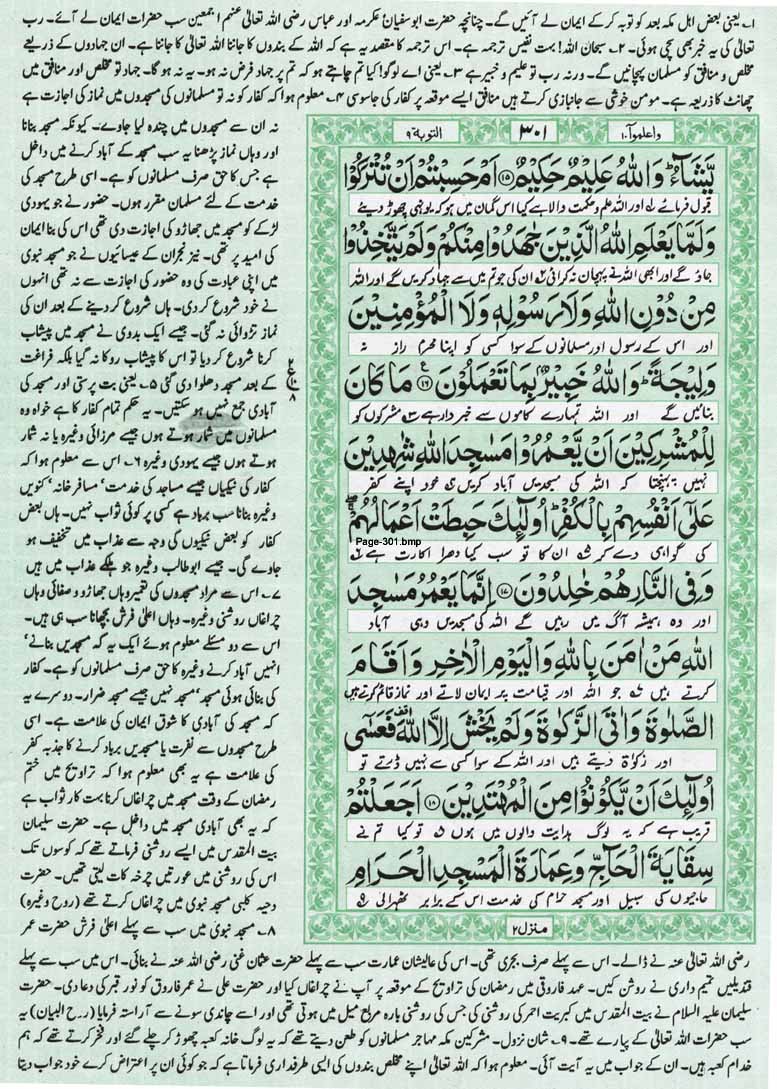 ۱۔ یعنی بعض اہل مکہ بعد کو توبہ کر کے ایمان لے آئیں گے۔ چنانچہ حضرت ابو سفیان عکرمہ اور عباس رضی اللہ تعالیٰ عنہم اجمعین سب حضرات ایمان لے آئے۔ رب
تعالیٰ کی یہ خبر بھی سچی ہوئی۔ ۲۔ سبحان اللہ! بہت نفیس ترجمہ ہے۔ اس ترجمہ کا مقصد یہ ہے کہ اللہ کے بندوں کا جاننا اللہ تعالیٰ کا جاننا ہے۔ ان جہادوں کے ذریعے
مخلص و منافق کو مسلمان پہچانیں گے۔ ورنہ رب تو علیم و خبیر ہے ۳۔ یعنی اے لوگو! کیا تم چاہتے ہو کہ تم پر جہاد فرض نہ ہو۔ یہ نہ ہو گا۔ جہاد تو مخلص اور منافق میں
چھانٹ کا ذریعہ ہے۔ مومن خوشی سے جانبازی کرتے ہیں منافق ایسے موقعہ پر کفار کی جاسوسی ۴۔ معلوم ہوا کہ کفار کو نہ تو مسلمانوں کی مسجدوں میں نماز کی اجازت ہے
واعلموآ۱۰
۳۰۱
التوبة ۹
يَّشَآءُ ؕ وَاللّٰهُ عَلِيْمٌ حَكِيْمٌ ۝۱۵ اَمْ حَسِبْتُمْ اَنْ تُتْرَكُوْا
قبول فرمائے ۱؎ اور اللہ علم و حکمت والا ہے کیا اس گمان میں ہو کہ یونہی چھوڑ دیئے
وَلَمَّا يَعْلَمِ اللّٰهُ الَّذِيْنَ جٰهَدُوْا مِنْكُمْ وَلَمْ يَتَّخِذُوْا
جاؤ گے اور ابھی اللہ نے پہچان نہ کرائی ۲؎ ان کی جو تم میں سے جہاد کریں گے اور اللہ
مِنْ دُوْنِ اللّٰهِ وَلَا رَسُوْلِهٖ وَلَا الْمُؤْمِنِيْنَ
اور اس کے رسول اور مسلمانوں کے سوا کسی کو اپنا محرم راز نہ
وَلِيْجَةً ؕ وَاللّٰهُ خَبِيْرٌۢ بِمَا تَعْمَلُوْنَ ۝۱۶ مَا كَانَ
بنائیں گے اور اللہ تمہارے کاموں سے خبردار ہے ۳؎ مشرکوں کو
لِلْمُشْرِكِيْنَ اَنْ يَّعْمُرُوْا مَسٰجِدَ اللّٰهِ شٰهِدِيْنَ
نہیں پہنچتا کہ اللہ کی مسجدیں آباد کریں ۴؎ خود اپنے کفر
عَلٰٓى اَنْفُسِهِمْ بِالْكُفْرِ ؕ اُولٰٓئِكَ حَبِطَتْ اَعْمَالُهُمْ
Page-301.bmp
کی گواہی دے کر ۵؎ ان کا تو سب کیا دھرا اکارت ہے ۶؎
وَفِى النَّارِ هُمْ خٰلِدُوْنَ ۝۱۷ اِنَّمَا يَعْمُرُ مَسٰجِدَ
اور وہ ہمیشہ آگ میں رہیں گے اللہ کی مسجدیں وہی آباد
اللّٰهِ مَنْ اٰمَنَ بِاللّٰهِ وَالْيَوْمِ الْاٰخِرِ وَاَقَامَ
کرتے ہیں ۷؎ جو اللہ اور قیامت پر ایمان لاتے اور نماز قائم کرتے ہیں
الصَّلٰوةَ وَاٰتَى الزَّكٰوةَ وَلَمْ يَخْشَ اِلَّا اللّٰهَ فَعَسٰٓى
اور زکوٰۃ دیتے ہیں اور اللہ کے سوا کسی سے نہیں ڈرتے تو
اُولٰٓئِكَ اَنْ يَّكُوْنُوْا مِنَ الْمُهْتَدِيْنَ ۝۱۸ اَجَعَلْتُمْ
قریب ہے کہ یہ لوگ ہدایت والوں میں ہوں ۸؎ تو کیا تم نے
سِقَايَةَ الْحَآجِّ وَعِمَارَةَ الْمَسْجِدِ الْحَرَامِ
حاجیوں کی سبیل اور مسجد حرام کی خدمت اس کے برابر ٹھہرالی ۹؎
منزل۲
نہ ان سے مسجدوں میں چندہ لیا جاوے۔ کیونکہ مسجد بنانا
اور وہاں نماز پڑھنا یہ سب مسجد کے آباد کرنے میں داخل
ہے جس کا حق صرف مسلمانوں کو ہے۔ اسی طرح مسجد کی
خدمت کے لئے مسلمان مقرر ہوں۔ حضور نے جو یہودی
لڑکے کو مسجد میں جھاڑو کی اجازت دی تھی اس کی بنا ایمان
کی امید پر تھی۔ نیز نجران کے عیسائیوں نے جو مسجد نبوی
میں اپنی عبادت کی وہ حضور کی اجازت سے نہ تھی انہوں
نے خود شروع کر دی۔ ہاں شروع کر دینے کے بعد ان کی
نماز تڑوائی نہ گئی۔ جیسے ایک بدوی نے مسجد میں پیشاب
کرنا شروع کر دیا تو اس کا پیشاب روکا نہ گیا بلکہ فراغت
کے بعد مسجد دھلوا دی گئی ۵۔ یعنی بت پرستی اور مسجد کی
آبادی جمع نہیں ہو سکتیں۔ یہ حکم تمام کفار کا ہے خواہ وہ
مسلمانوں میں شمار ہوتے ہوں جیسے مرزائی وغیرہ یا نہ شمار
ہوتے ہوں جیسے یہودی وغیرہ ۶۔ اس سے معلوم ہوا کہ
کفار کی نیکیاں جیسے مساجد کی خدمت' مسافر خانہ' کنویں
وغیرہ بنانا سب برباد ہے کسی پر کوئی ثواب نہیں۔ ہاں بعض
کفار کو بعض نیکیوں کی وجہ سے عذاب میں تخفیف ہو
جاوے گی۔ جیسے ابو طالب وغیرہ جو ہلکے عذاب میں ہیں
۷۔ اس سے مراد مسجدوں کی تعمیر وہاں جھاڑو و صفائی وہاں
چراغاں روشنی وغیرہ۔ وہاں اعلیٰ فرش بچھانا سب ہی ہیں۔
اس سے دو مسئلے معلوم ہوئے ایک یہ کہ مسجدیں بنانے'
انہیں آباد کرنے وغیرہ کا حق صرف مسلمانوں کو ہے۔ کفار
کی بنائی ہوئی مسجد' مسجد نہیں جیسے مسجد ضرار۔ دوسرے یہ
کہ مسجد کی آبادی کا شوق ایمان کی علامت ہے۔ اسی
طرح مسجدوں سے نفرت یا مسجدیں برباد کرنے کا جذبہ کفر
کی علامت ہے یہ بھی معلوم ہوا کہ تراویح میں ختم
رمضان کے وقت مسجد میں چراغاں کرنا بہت کار ثواب ہے
کہ یہ بھی آبادی مسجد میں داخل ہے۔ حضرت سلیمان
بیت المقدس میں ایسے روشنی فرماتے تھے کہ کوسوں تک
اس کی روشنی میں عورتیں چرخہ کات لیتی تھیں۔ حضرت
دحیہ کلبی مسجد نبوی میں چراغاں کرتے تھے (روح وغیرہ)
۸۔ مسجد نبوی میں سب سے پہلے اعلیٰ فرش حضرت عمر
رضی اللہ تعالیٰ عنہ نے ڈالے۔ اس سے پہلے صرف بجری تھی۔ اس کی عالیشان عمارت سب سے پہلے حضرت عثمان غنی رضی اللہ عنہ نے بنائی۔ اس میں سب سے پہلے
قندیلیں تمیم داری نے روشن کیں۔ عہد فاروقی میں رمضان کی تراویح کے موقعہ پر آپ نے چراغاں کیا اور حضرت علی نے عمر فاروق کو نور قبر کی دعا دی۔ حضرت
سلیمان علیہ السلام نے بیت المقدس میں کبریت احمر کی روشنی کی جس کی روشنی بارہ مربع میل میں ہوتی تھی اور اسے چاندی سونے سے آراستہ فرمایا (روح البیان) یہ
سب حضرات اللہ تعالیٰ کے پیارے تھے۔ ۹۔ شان نزول۔ مشرکین مکہ مہاجر مسلمانوں کو طعن دیتے تھے کہ یہ لوگ خانہ کعبہ چھوڑ کر چلے گئے اور فخر کرتے تھے کہ ہم
خدام کعبہ ہیں۔ ان کے جواب میں یہ آیت آئی۔ معلوم ہوا کہ اللہ تعالیٰ اپنے مخلص بندوں کی ایسی طرفداری فرماتا ہے کہ جو کوئی ان پر اعتراض کرے خود جواب دیتا